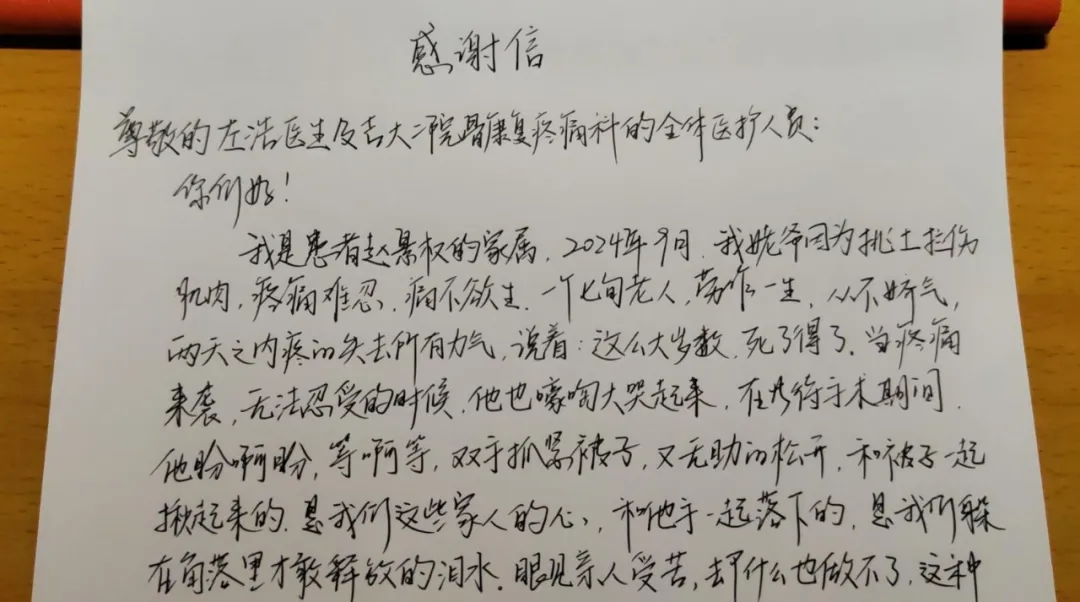 感谢信
尊敬的左浩医生及吉大二院骨康复疼痛科的全体医护人员:
你们好!
我是患者赵景权的家属,2024年9月,我姥爷因为挑土拉伤
肌肉,疼痛难忍,痛不欲生,一个七旬老人,劳作一生,从不娇气,
两天之内疼的失去所有力气,说着:这么大岁数,死了得了,当疼痛
来袭,无法忍受的时候,他也嚎啕大哭起来,在等待手术期间,
他盼啊盼,等啊等,双手抓紧被子,又无助的松开,和被子一起
揪起来的,是我们这些家人的心,和他手一起落下的,是我们躲
在角落里才敢释放的泪水。眼见亲人受苦,却什么也做不了,这种